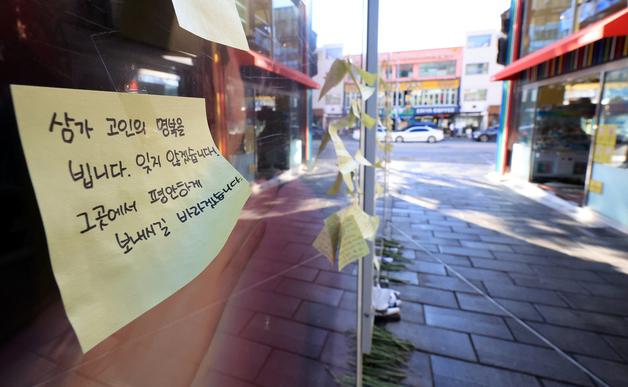 삼가 고인의 명복을
빕니다. 잊지 않겠습니다.
그곳에서 평안하게
보내시길 바라겠습니다.